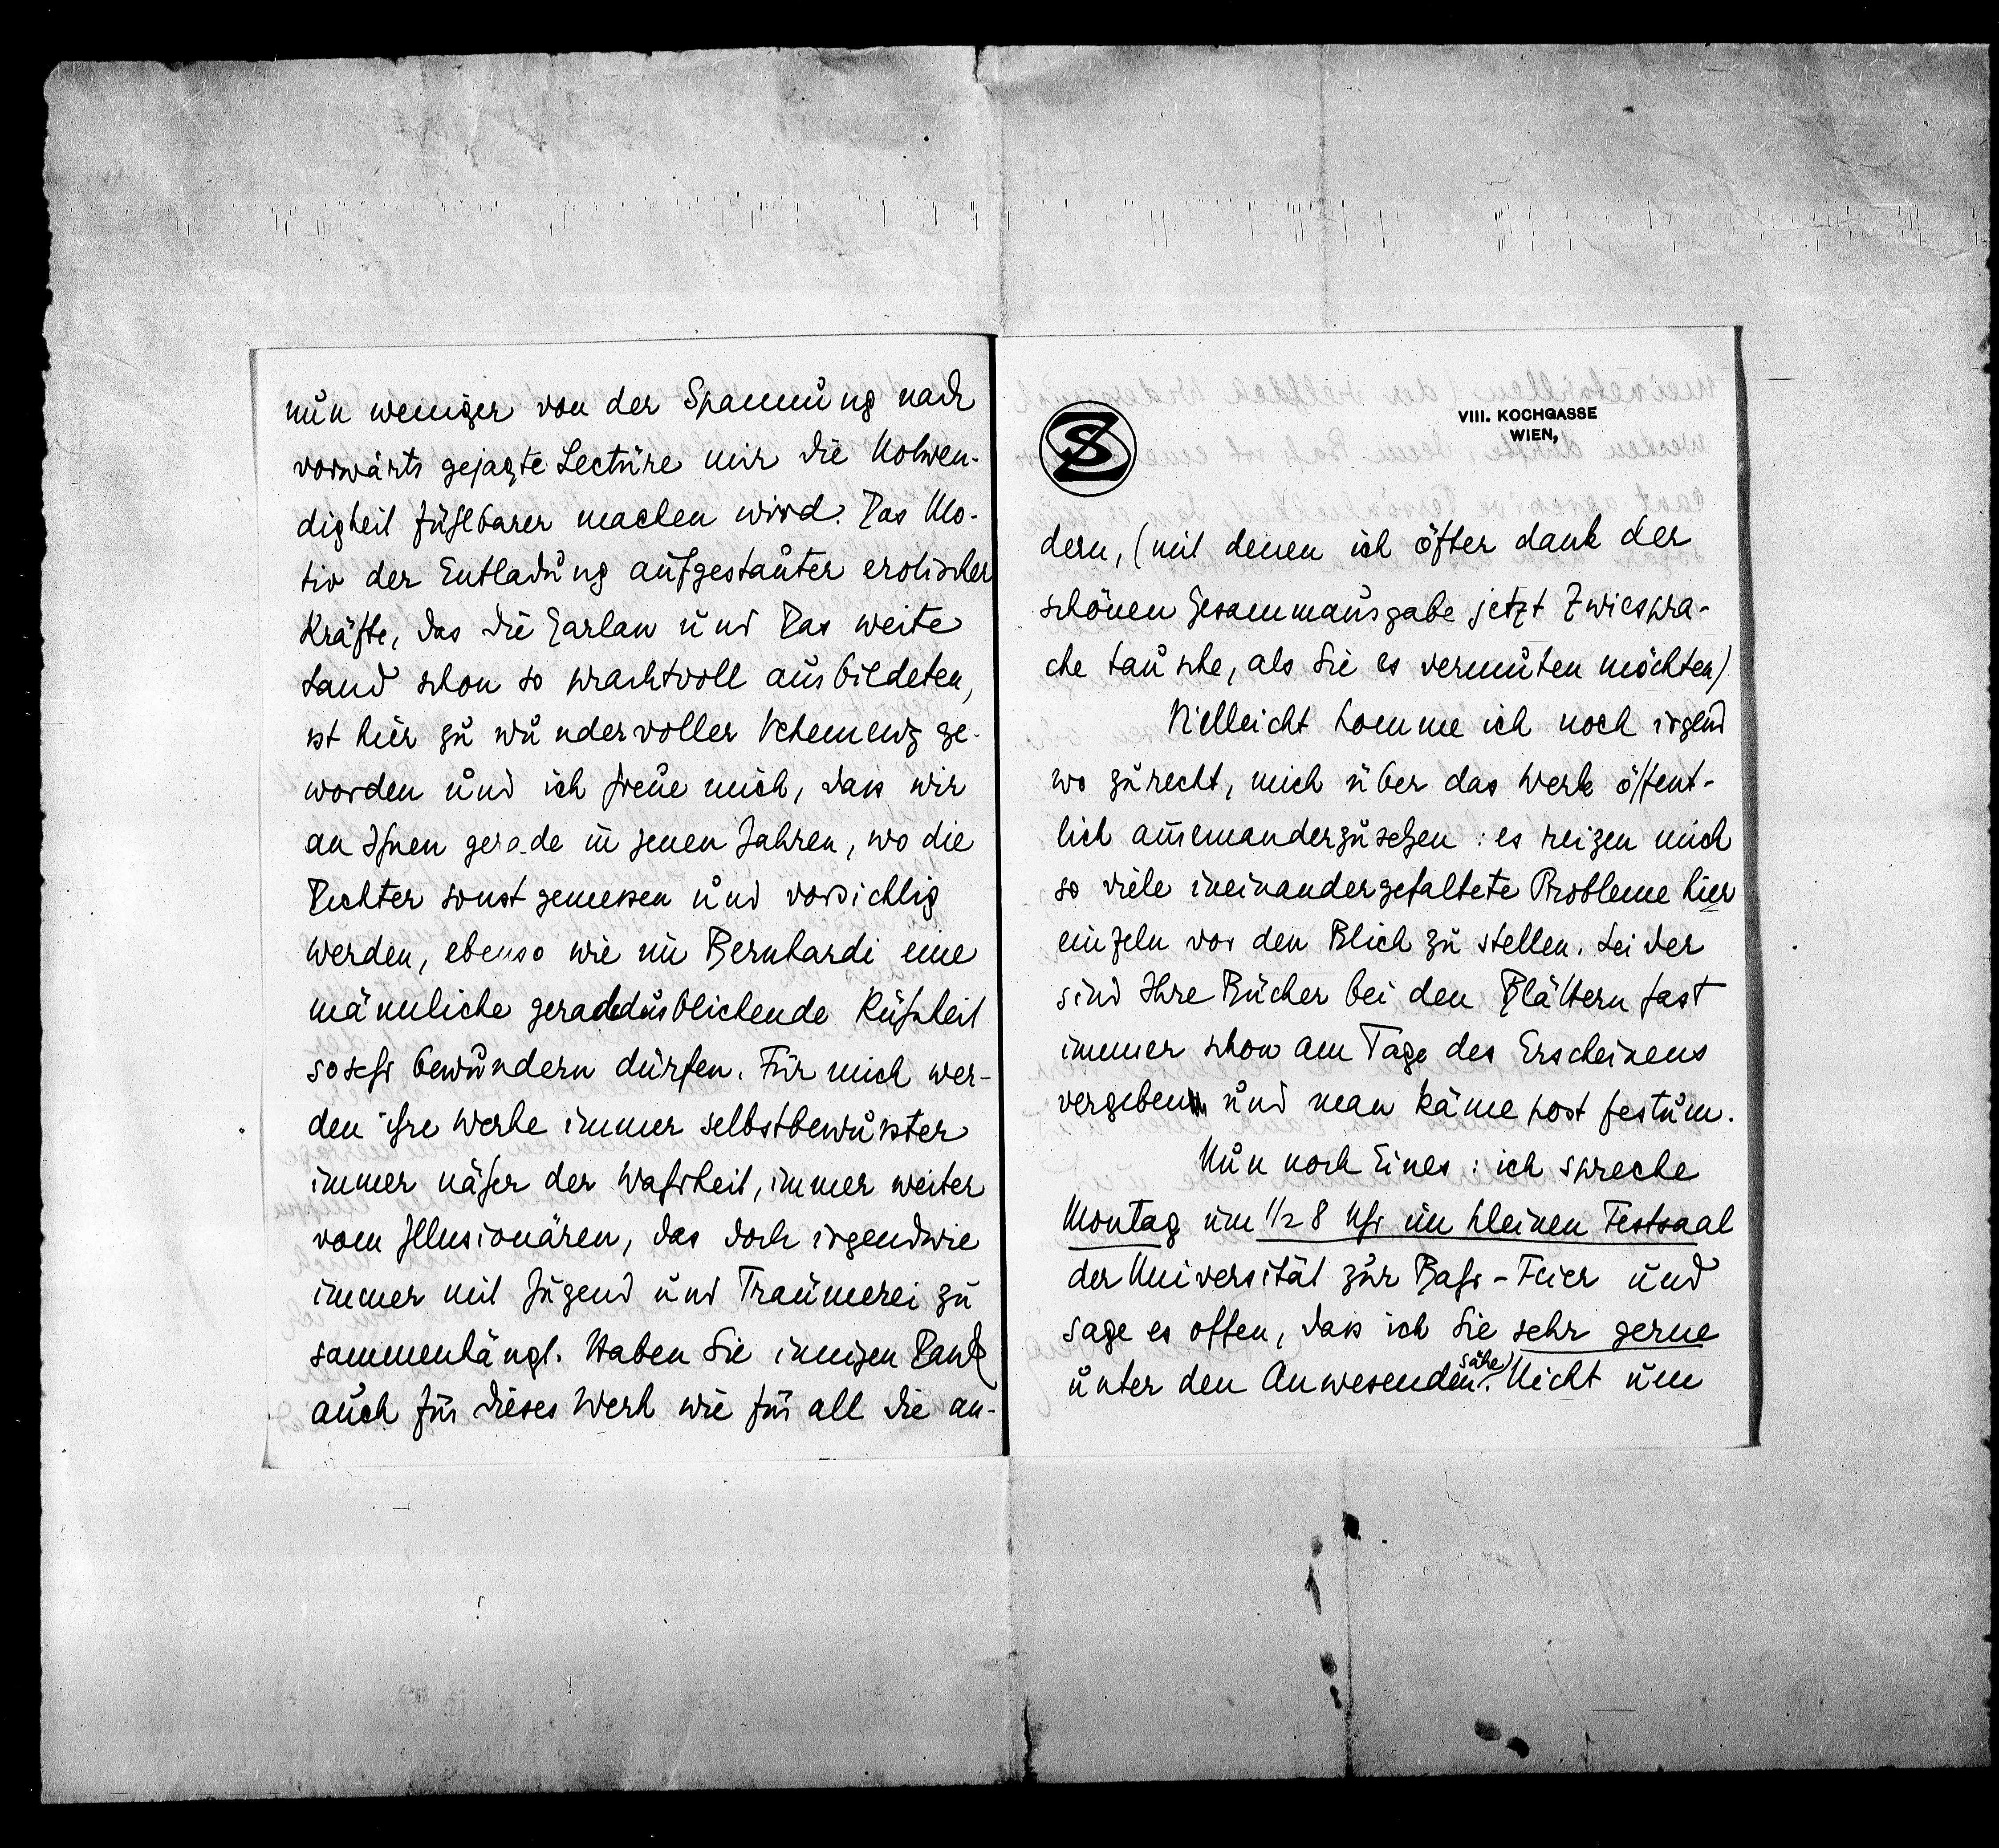 nun weniger von der Spannung nach
vorwärts gejagte Lectüre mir die Notwen-
digkeit fühlbarer machen wird. Das Mo-
tiv der Entladung aufgestauter erotischer
Kräfte, das die Garlan und Das weite
Land schon so prachtvoll ausbildeten,
ist hier zu wundervoller Vehemenz ge-
worden und ich freue mich, dass wir
an Ihnen gerade in jenen Jahren, wo die
Dichter sonst gemessen und vorsichtig
werden, ebenso wie im Bernhardi eine
männliche geradeausblickende Kühnheit
sosehr bewundern dürfen. Für mich wer-
den ihre Werke immer selbstbewusster
immer näher der Wahrheit, immer weiter
vom Illusionären, das doch irgendwie
immer mit Jugend und Traümerei zu
sammenhängt. Haben Sie innigen Dank
auch für dieses Werk wie für all die an-
SZ
VIII. KOCHGASSE
WIEN,
dern, (mit denen ich öfter dank der
schönen Gesammausgabe jetzt Zwiespra-
che tausche, als Sie es vermuten möchten)
Vielleicht komme ich noch irgend
wo zurecht, mich über das Werk öffent-
lich auseinanderzusetzen: es reizen mich
so viele ineinandergefaltete Probleme hier
einzeln vor den Blick zu stellen. Leider
sind Ihre Bücher bei den Blättern fast
immer schon am Tage des Erscheinens
vergeben und man käme post festum.
Nun noch Eines: ich spreche
Montag um 1/2 8 Uhr im kleinen Festsaal
der Universität zur Bahr-Feier und
sage es offen, dass ich Sie sehr gerne
unter den Anwesenden sähe. Nicht um